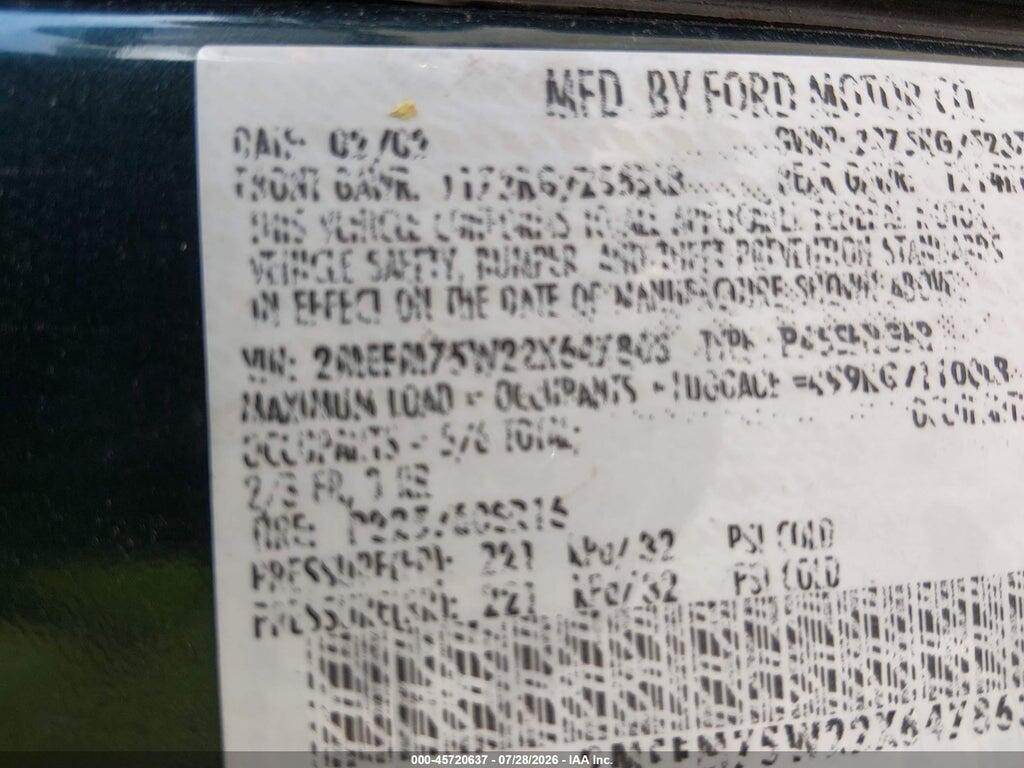 MFD. BY FORD MOTOR CO.
DATE: 02/02 GVWR: 2375KG/523
FRONT GAWR: 1172KG REAR GAWR:
THIS VEHICLE CONFORMS TO ALL APPLICABLE FEDERAL MOTOR
VEHICLE SAFETY, BUMPER, AND THEFT PREVENTION STANDARDS
IN EFFECT ON THE DATE OF MANUFACTURE SHOWN ABOVE
VIN: TYPE: PASSENGER
MAXIMUM LOAD = OCCUPANTS + LUGGAGE =499KG/1100LB
OCCUPANTS = 5/6 TOTAL;
2/3 FR, 3 RE
TIRE: P225/60SR16
PRESSURE(FR): 221 kPa/ 32 PSI COLD
PRESSURE(RR): 221 kPa/ 32 PSI COLD
000-45720637 - 07/28/2026 - IAA Inc.